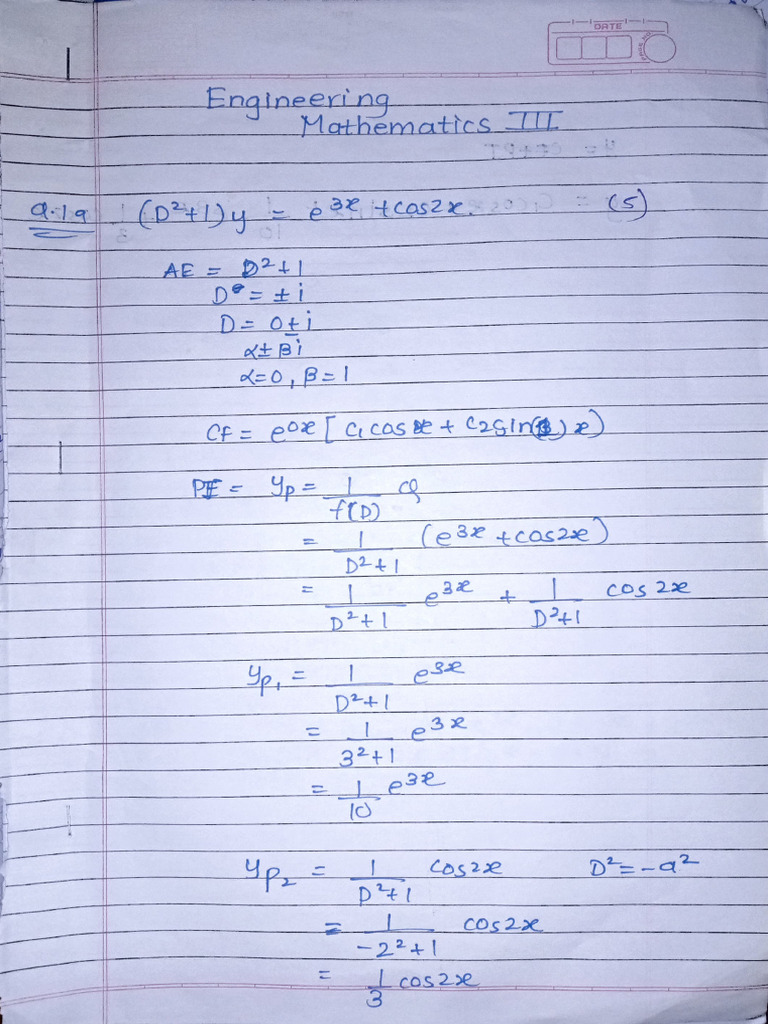 DATE
Engineering
Mathematics III
Q.1a (D²+1)y = e^3x + cos2x. (5)
AE = D²+1
D = ±i
D = 0±i
α±βi
α=0, β=1
CF = e^0x [C₁cosx + C₂sin(1)x)
PI = yp = 1/f(D) Q
= 1/D²+1 (e^3x + cos2x)
= 1/D²+1 e^3x + 1/D²+1 cos2x
yp₁ = 1/D²+1 e^3x
= 1/3²+1 e^3x
= 1/10 e^3x
yp₂ = 1/D²+1 cos2x D²=-a²
= 1/-2²+1 cos2x
= 1/3 cos2x